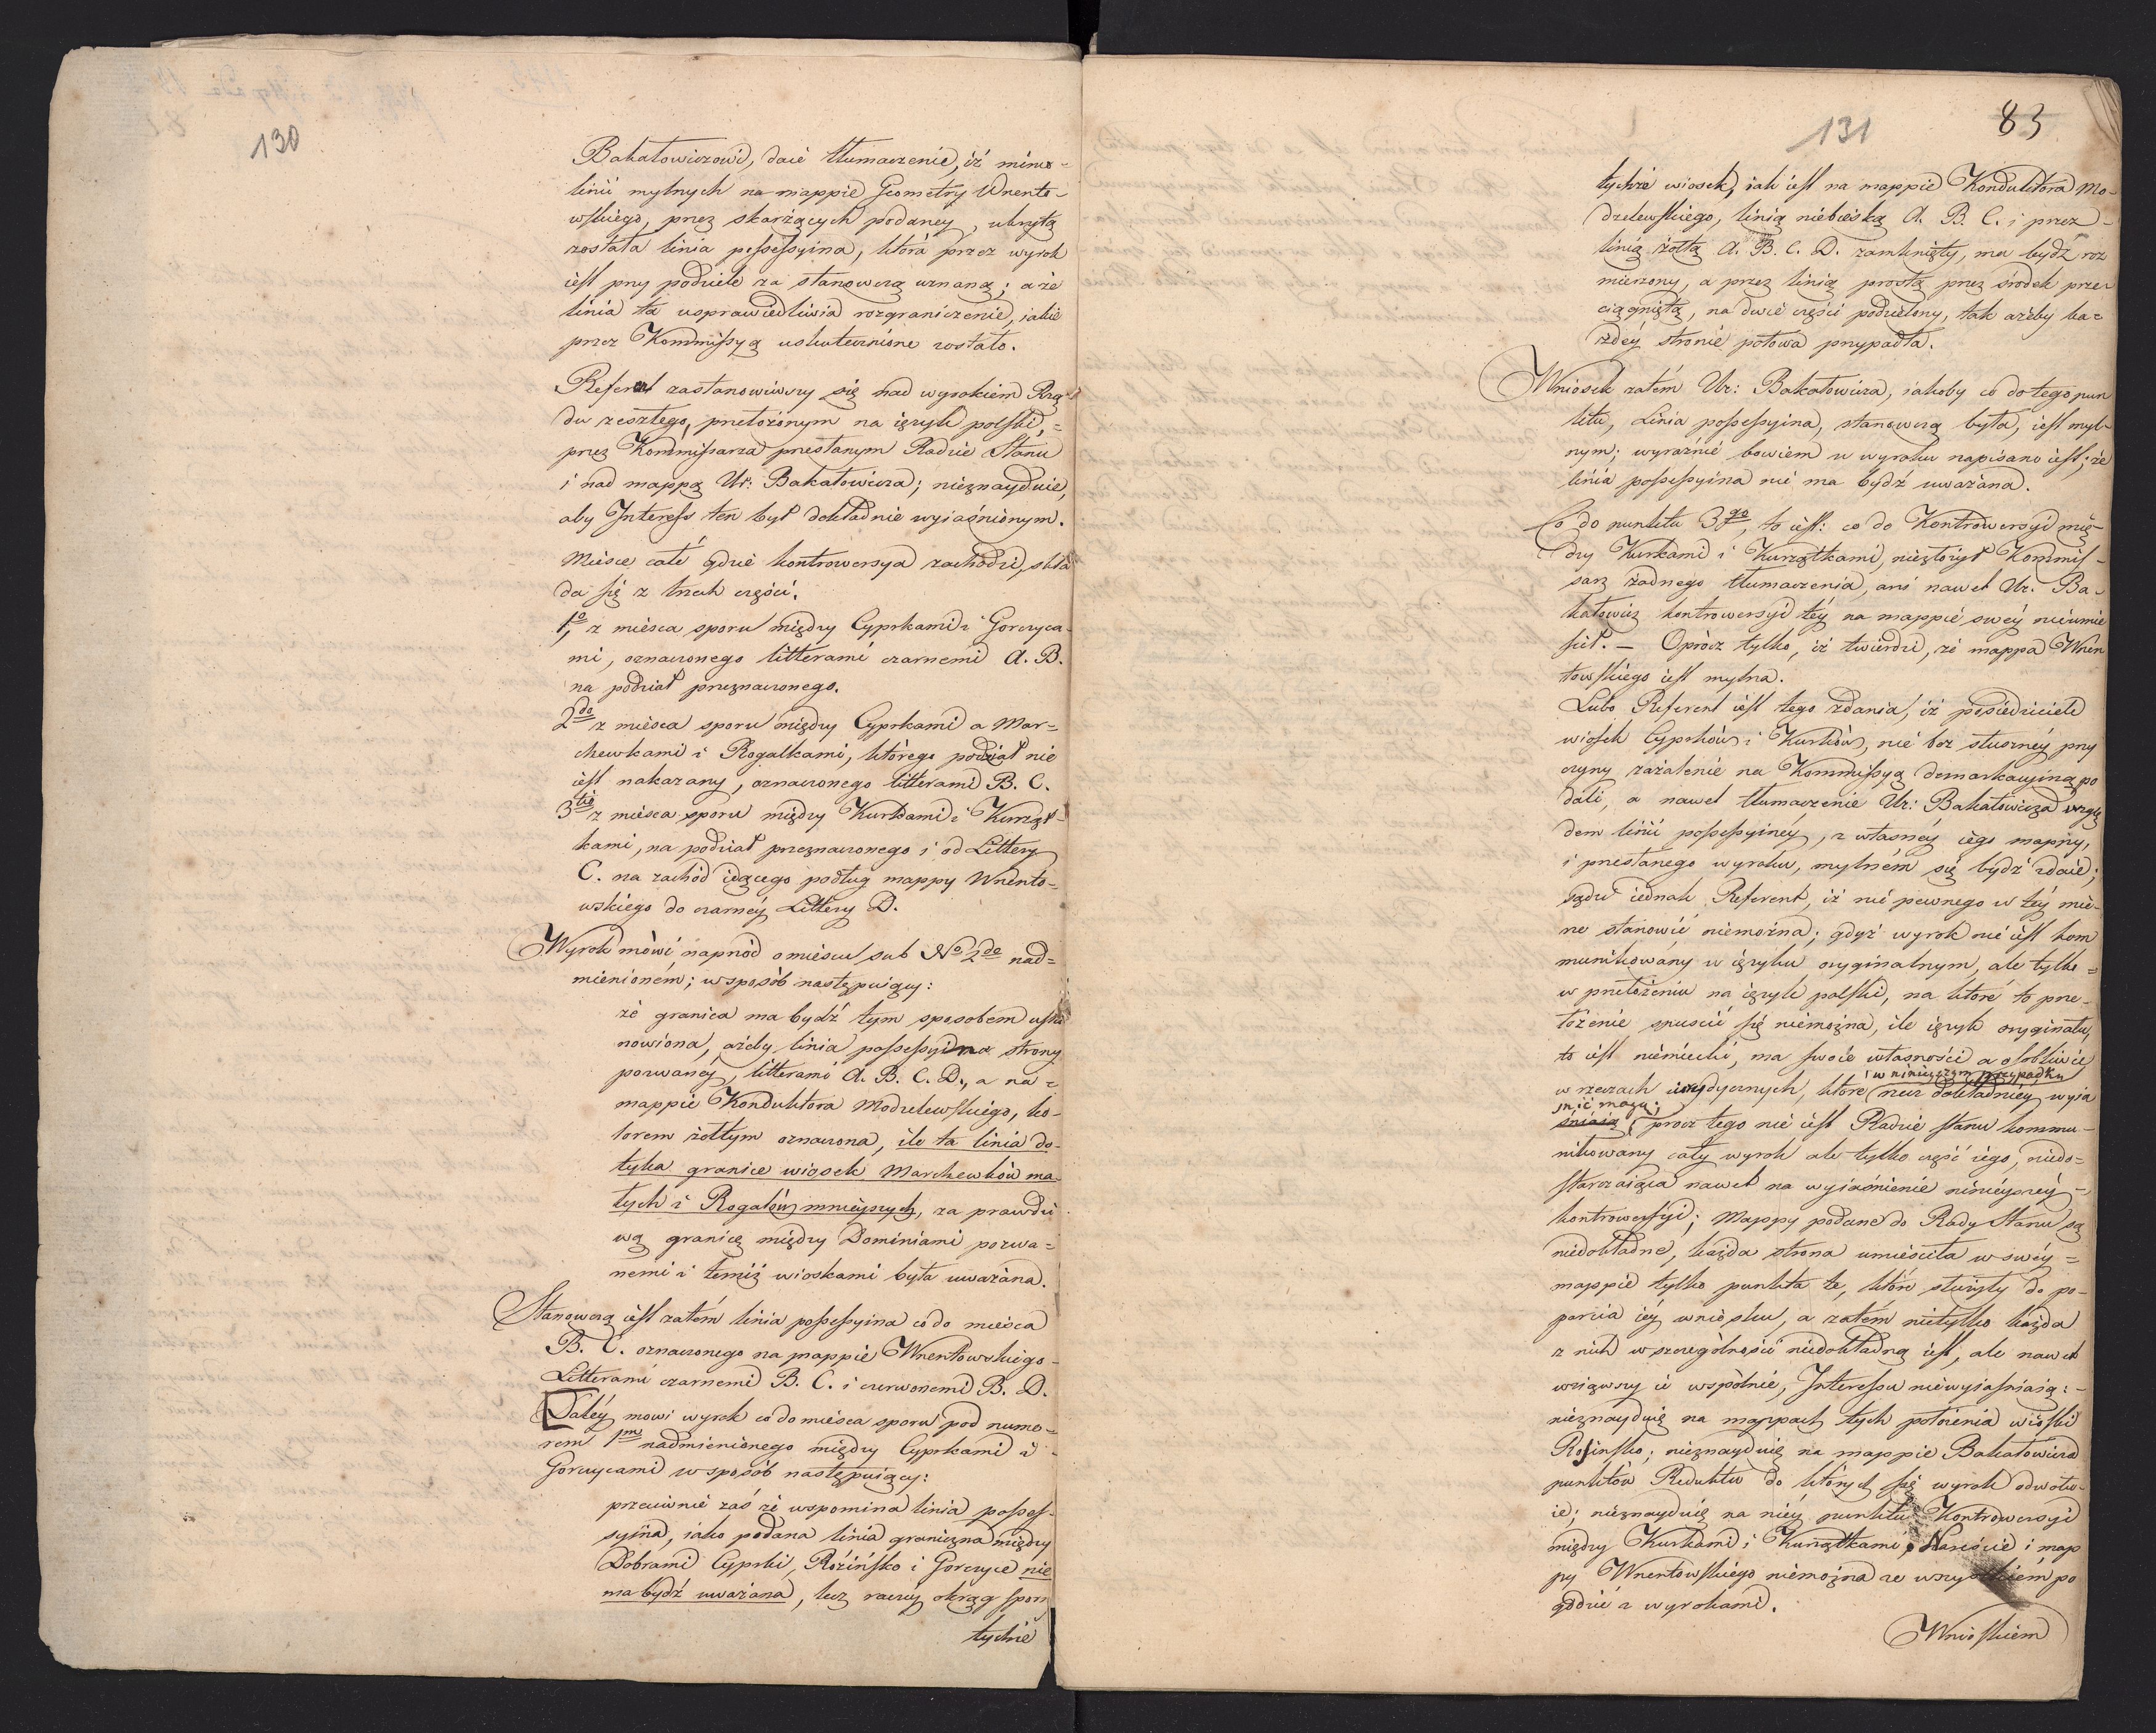 130
Bakałowiczowi, daie tłumaczenie, iż mimo
linii mylnych na mappie Geometry Wnento-
wskiego, przez skarżących podaney, ukryta
została linia possessyina, która przez wyrok
iest przy podziele za stanowczą uznaną; a że
linia ta usprawiedliwia rozgraniczenie, iakie
przez Kommissyą uskutecznione zostało.
Referent zastanowiwszy się nad wyrokiem Rzą-
du zeszłego, przełożonym na ięzyk polski,
przez Kommissarza przesłanym Radzie Stanu
i nad mappą Ur: Bakałowicza; nieznayduie,
aby Interess ten był dokładnie wyiaśnionym.
Mieysce całe gdzie kontrowersya zachodzi, skła
da się z trzech części.
1o, z mieysca sporu między Cyprkami i Gorczyca-
mi, oznaczonego litterami czarnemi A. B.
na podział przeznaczonego.
2do z mieysca sporu między Cyprkami a Mar-
chewkami i Rogalkami, którego podział nie
iest nakazany, oznaczonego litterami B. C.
3tio z mieysca sporu między Kurkami i Kurząt-
kami, na podział przeznaczonego i od Littery
C. na zachód idącego podług mappy Wnento-
wskiego do czarnéy Littery D.
Wyrok mówi naprzód o mieyscu sub No 2do nad-
mienioném; w sposób następuiący:
że granica ma bydź tym sposobem usta
nowiona, ażeby linia possessyina strony
pozwanéy, litterami A. B. C. D., a na
mappie Konduktora Modzelewskiego, ko-
lorem żółtym oznaczona, ile ta linia do-
tyka granice wiosek Marchewków ma-
łych i Rogalów mnieyszych, za prawdzi
wą granicę między Dominiami pozwa-
nemi i temiż wioskami była uważana.
Stanowczą iest zatém linia possessyina co do mieysca
B. C. oznaczonego na mappie Wnentowskiego
Litterami czarnemi B. C. i czerwonemi B. D.
Daléy mowi wyrok co do mieysca sporu pod nume-
rem 1mo nadmienionego między Cyprkami i
Gorczycami w sposób następuiący:
przeciwnie zaś że wspomina linia posses-
syina, iako podana linia graniczna między
Dobrami Cyprki, Rożińsko i Gorczyce nie
ma bydź uważana, lecz raczéy okrąg sporu
tychże
131
83
tychże wiosek, iak iest na mappie Konduktora Mo-
dzelewskiego, linią niebieską A. B. C. i przez
linią żółtą A. B. C. D. zamknięty, ma bydź roz
mierzony, a przez linią prostą przez środek prze-
ciągniętą, na dwie części podzielony, tak ażeby ka-
żdéy stronie połowa przypadła.
Wniosek zatém Ur: Bakałowicza, iakoby co do tego pun
ktu, Linia possessyina, stanowczą była, iest myl-
nym; wyraźnie bowiem w wyroku napisano iest; że
linia possessyina nie ma bydź uważana.
Co do punktu 3go, to iest: co do Kontrowersyi mię-
dzy Kurkami i Kurzątkami, niezłożył Kommis-
sarz żadnego tłumaczenia, ani nawet Ur. Ba-
kałowicz kontrowersyi téy na mappie swéy nieumie
ścił. – Oprócz tylko, iż twierdzi, że mappa Wnen
towskiego iest mylna.
Lubo Referent iest tego zdania, iż posiedziciele
wiosek Cyprków i Kurków, nie bez słuszney przy
czyny zażalenie na Kommissyą demarkacyiną po
dali, a nawet tłumaczenie Ur: Bakałowicza wzglę
dem linii possessyinéy, z własnéy iego mappy,
i przesłanego wyroku, mylném się bydź zdaie;
sądzi iednak Referent, iż nic pewnego w téy mie-
rze stanowić niemożna; gdyż wyrok nie iest kom
munikowany w ięzyku oryginalnym, ale tylko
w przełożeniu na ięzyk polski, na które to prze-
łożenie spuścić się niemożna, ile ięzyk oryginału,
to iest niemiecki, ma swoie własności a osobliwie
w rzeczach iurydycznych, które w ninieyszym przypadku rzecz dokładniéy wyia
śnić mogą; prócz tego nie iest Radzie stanu kommu-
nikowany cały wyrok ale tylko część iego, niedo-
starczaiąca nawet na wyiaśnienie ninieyszéy
kontrowersyi; Mappy podane do Rady Stanu są
niedokładne, każda strona umieściła w swéy
mappie tylko punkta te, które służyły do po-
parcia iéy wniosku, a zatem nietylko każda
z nich w szczególności niedokładną iest, ale nawet
wziąwszy ie wspólnie, Interessu niewyiaśniaią:
nieznayduię na mappach tych położenia wioski
Rosinsko; nieznayduię na mappie Bakałowicza
punktów Reduktu do których się wyrok odwołu-
ie; nieznayduię na niéy punktu Kontrowersyi
między Kurkami i Kurzątkami; Nareście i map
py Wnentowskiego niemożna ze wszystkiém po
godzić z wyrokami.
Wnioskiem